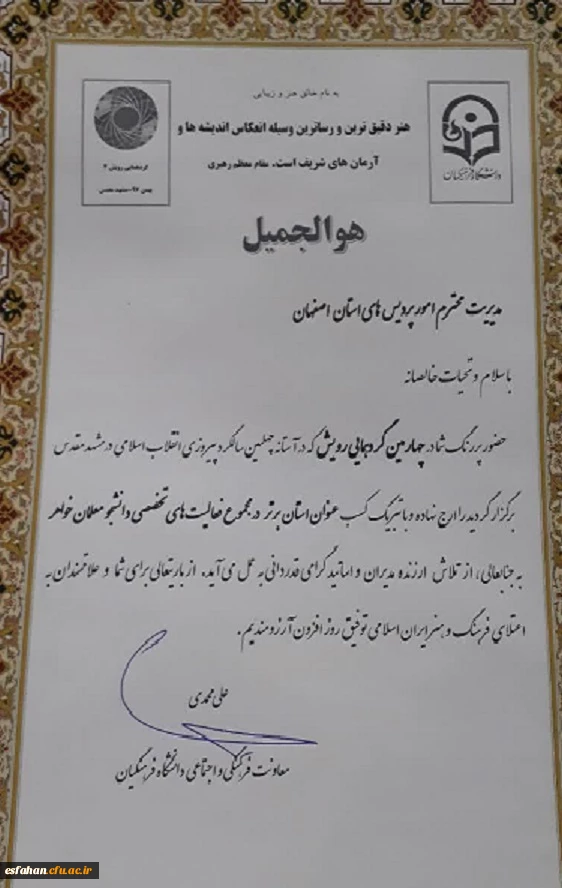 به نام خالق هنر و زیبایی
هنر دقیق ترین و رساترین وسیله انعکاس اندیشه ها و
آرمان های شریف است. مقام معظم رهبری
گردهمایی رویش ۴
بهمن ۹۷-مشهد مقدس
دانشگاه فرهنگیان
هوالجمیل
مدیریت محترم امور پردیس های استان اصفهان
با سلام و تحیات خالصانه
حضور پررنگ شما در چهارمین گردهمایی رویش که در آستانه چهلمین سالگرد پیروزی انقلاب اسلامی در مشهد مقدس
برگزار گردید را ارج نهاده و با تبریک کسب عنوان استان برتر در مجموع فعالیت های تخصصی دانشجو معلمان خواهر
به جنابعالی، از تلاش ارزنده مدیران و اساتید گرامی قدردانی به عمل می آید. از باریتعالی برای شما و علاقمندان به
اعتلای فرهنگ و هنر ایران اسلامی توفیق روز افزون آرزومندیم.
علی محمدی
معاونت فرهنگی و اجتماعی دانشگاه فرهنگیان
esfahan.cfu.ac.ir